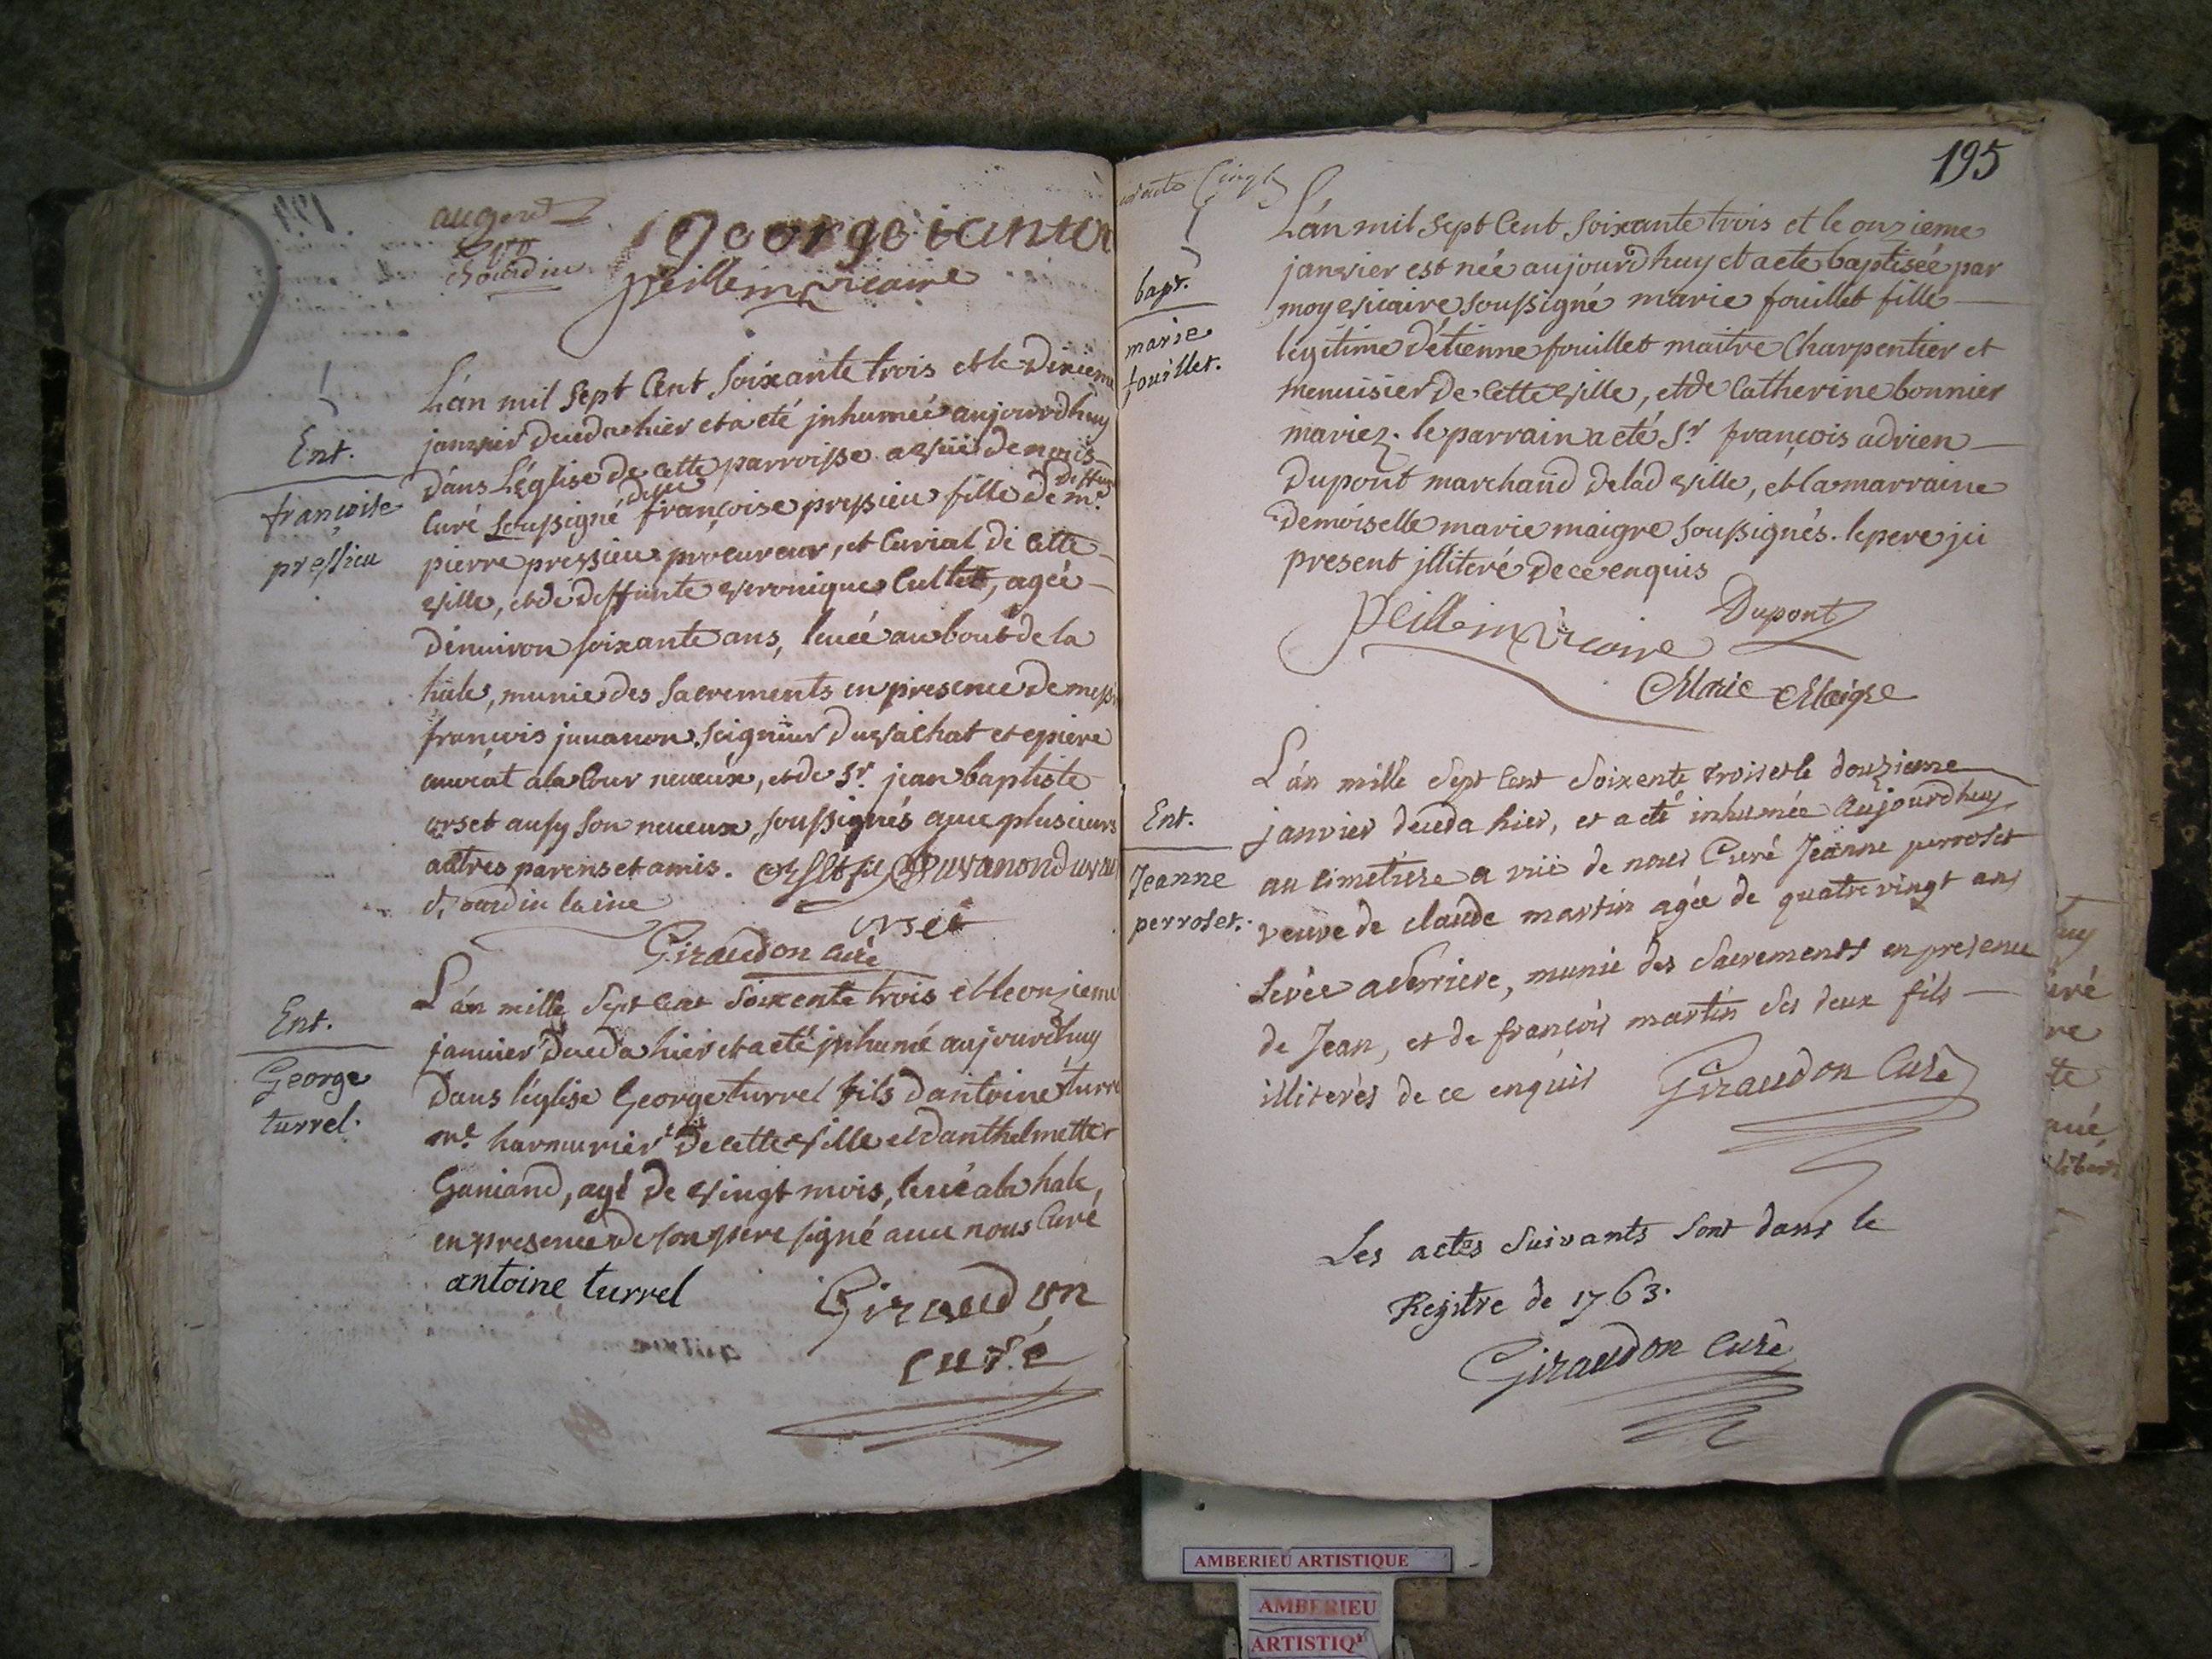 augerd
chourdin
george ianin
peillem vicaire
Ent.
françoise
pressieu
L'an mil sept Cent soixante trois et le Dixieme
janvier deceda hier et a eté jnhumée aujourdhuy
dans L'église de cette parroisse a vüe de nous
curé soussigné delle françoise pressieu fille de deffunt me
pierre pressieu procureur, et curial de cette
ville, et de deffunte veronique Cullet, agée
d'environ soixante ans, levée au bout de la
hale, munie des sacrements en presence de messr
françois juvanon seigneur du vachat et epierre
avocat a la Cour neveux, et de sr. jean baptiste
orset ausy son neveux, soussignés avec plusieurs
autres parens et amis. Orset fils Juvanon duva
chourdin laine
orset
Giraudon curé
Ent.
George
turrel.
L'an mille Sept Cent Soixente trois et le onzieme
janvier deceda hier et a eté jnhumé aujourdhuy
dans l'église George turrel fils d'antoine turrel
me. harmurier de cette ville et d'anthelmette
Ganiand, agé de vingt mois, levé a la hale,
en presence de son pere signé avec nous Curé
antoine turrel
Giraudon
curé
195
bapt.
marie
fouillet.
L'an mil sept Cent soixante trois et le onzieme
janvier est née aujourd'huy et a eté baptisée par
moy vicaire soussigné marie fouillet fille
légitime d'étienne fouillet maitre Charpentier et
menuisier de cette ville, et de Catherine bonnier
mariez. le parrain a eté sr françois adrien
Dupont marchand de lad ville, et la marraine
Demoiselle marie maigre soussignés. le pere jci
present jlliteré de ce enquis
Peillem vicaire Dupont
Marie Maigre
Ent.
Jeanne
perroset.
L'an mille Sept Cent Soixente trois et le douzieme
janvier deceda hier, et a eté inhumée aujourdhuy
au cimetiere a vüe de nous Curé Jeanne perroset
veuve de claude martin agée de quatre vingt ans
levée a Verriere, munie des Sacrements en presence
de Jean, et de françois martin Ses deux fils
illiterés de ce enquis Giraudon Curé
Les actes Suivants Sont dans le
Regitre de 1763.
Giraudon Curé
AMBERIEU ARTISTIQUE
AMBERIEU
ARTISTIQ